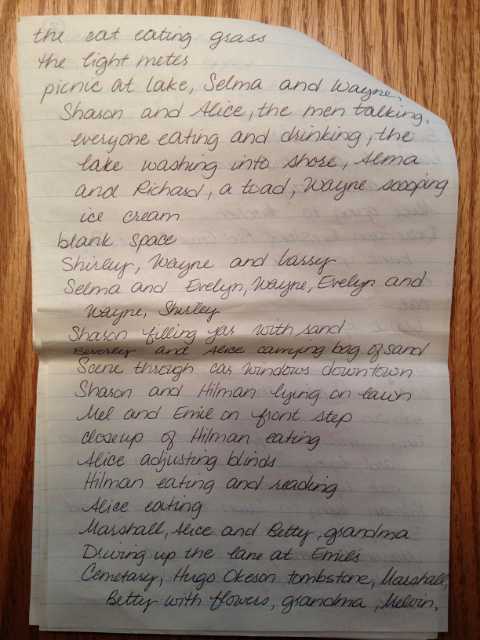 the cat eating grass
the light meter
picnic at lake, Selma and Wayne,
Sharon and Alice, the men talking,
everyone eating and drinking, the
lake washing into shore, Alma
and Richard, a toad, Wayne scooping
ice cream
blank space
Shirley, Wayne and Lassy
Selma and Evelyn, Wayne, Evelyn and
Wayne, Shirley
Sharon filling jar with sand
Beverley and Alice carrying bag of sand
Scene through car windows downtown
Sharon and Hilman lying on lawn
Mel and Emil on front step
closeup of Hilman eating
Alice adjusting blinds
Hilman eating and reading
Alice eating
Marshall, Alice and Betty, grandma
Driving up the lane at Emil's
Cemetary, Hugo Okeson tombstone, Marshall,
Betty with flowers, grandma, Melvin,